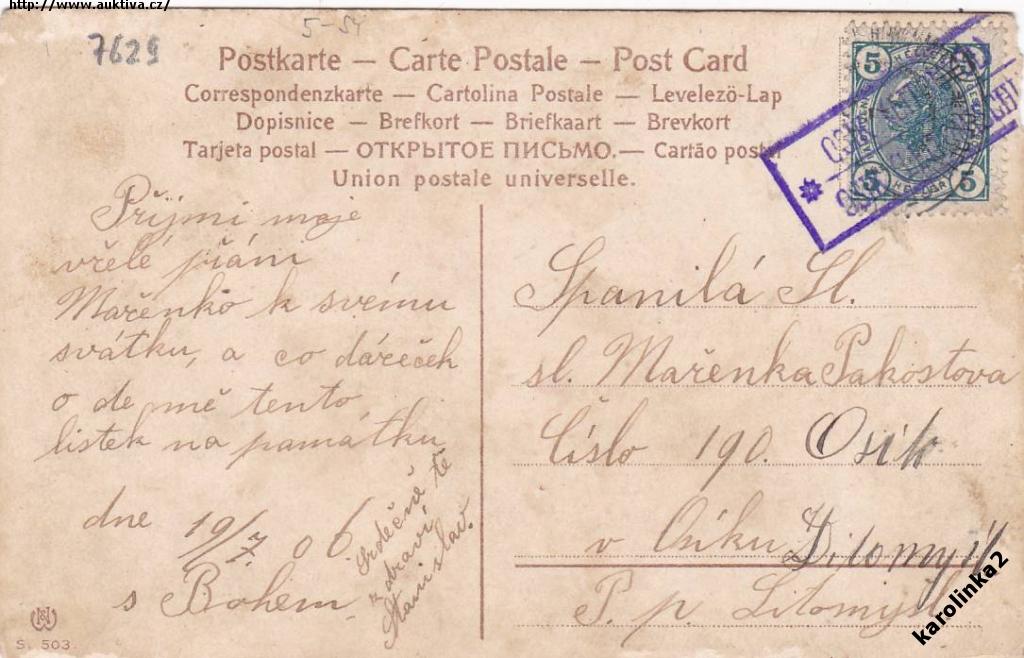 http://www.auktiva.cz/
7629
5-54
Postkarte — Carte Postale — Post Card
Correspondenzkarte — Cartolina Postale — Levelezö-Lap
Dopisnice — Brefkort — Briefkaart — Brevkort
Tarjeta postal — ОТКРЫТОЕ ПИСЬМО. — Cartão postal
Union postale universelle.
5 5
5 5
Přijmi moje
vřelé přání
Mařenko k svému
svátku, a co dáreček
o de mě tento
listek na památku
dne 19/7 06.
s Bohem
Srdečně tě
zdraví
Stanislav.
Spanilá Sl.
sl. Mařenka Pakostova
Číslo 190. Osík
v Osíku Litomyšl
P. p. Litomyšl
S. 503.
karolinka2